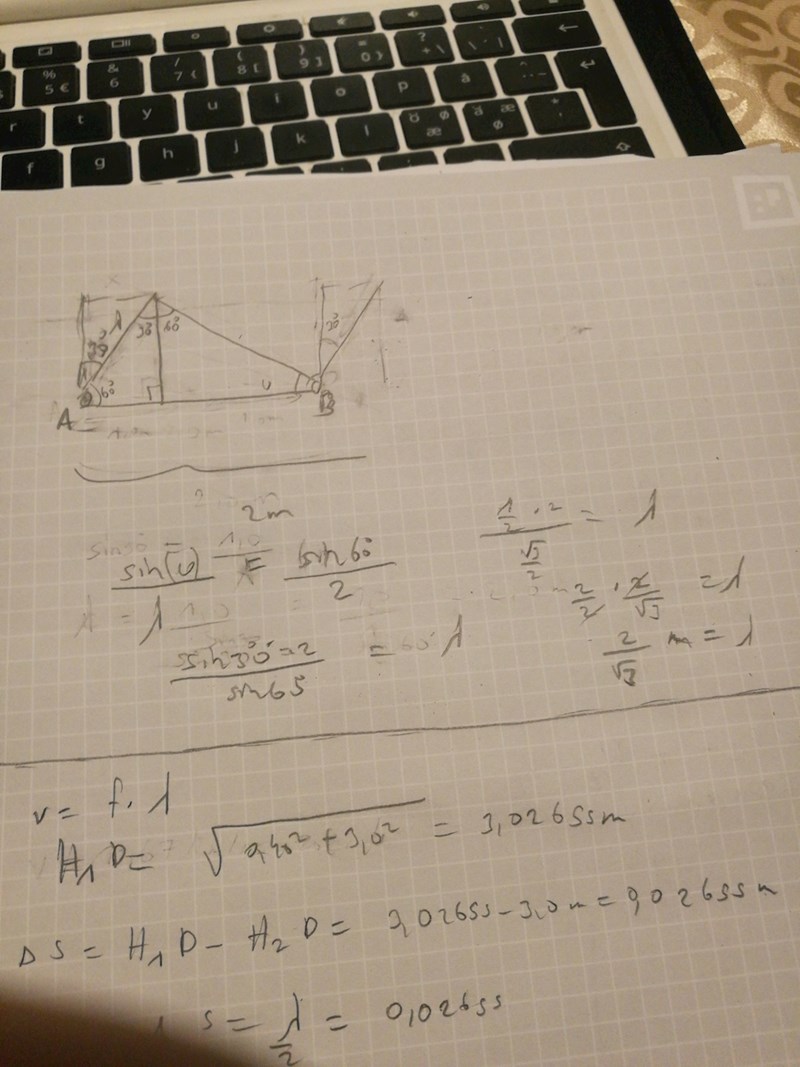 % 5 €
& 6
/ 7 {
( 8 [
) 9 ]
= 0 }
? + \
r t y u i o p å
f g h j k l
λ
30° 30° 60°
30°
60°
u
A
B
2m
sin(u) / λ = sin 60° / 2
sin 30° · 2 / sin 60° = λ
1/2 · 2 / √3/2 = λ
2/2 · 2/√3 = λ
2/√3 m = λ
v = f · λ
H₁D = √0,40² + 3,0² = 3,02655m
Δ S = H₁D - H₂D = 3,02655 - 3,0 m = 0,02655 m
S = λ/2 = 0,02655